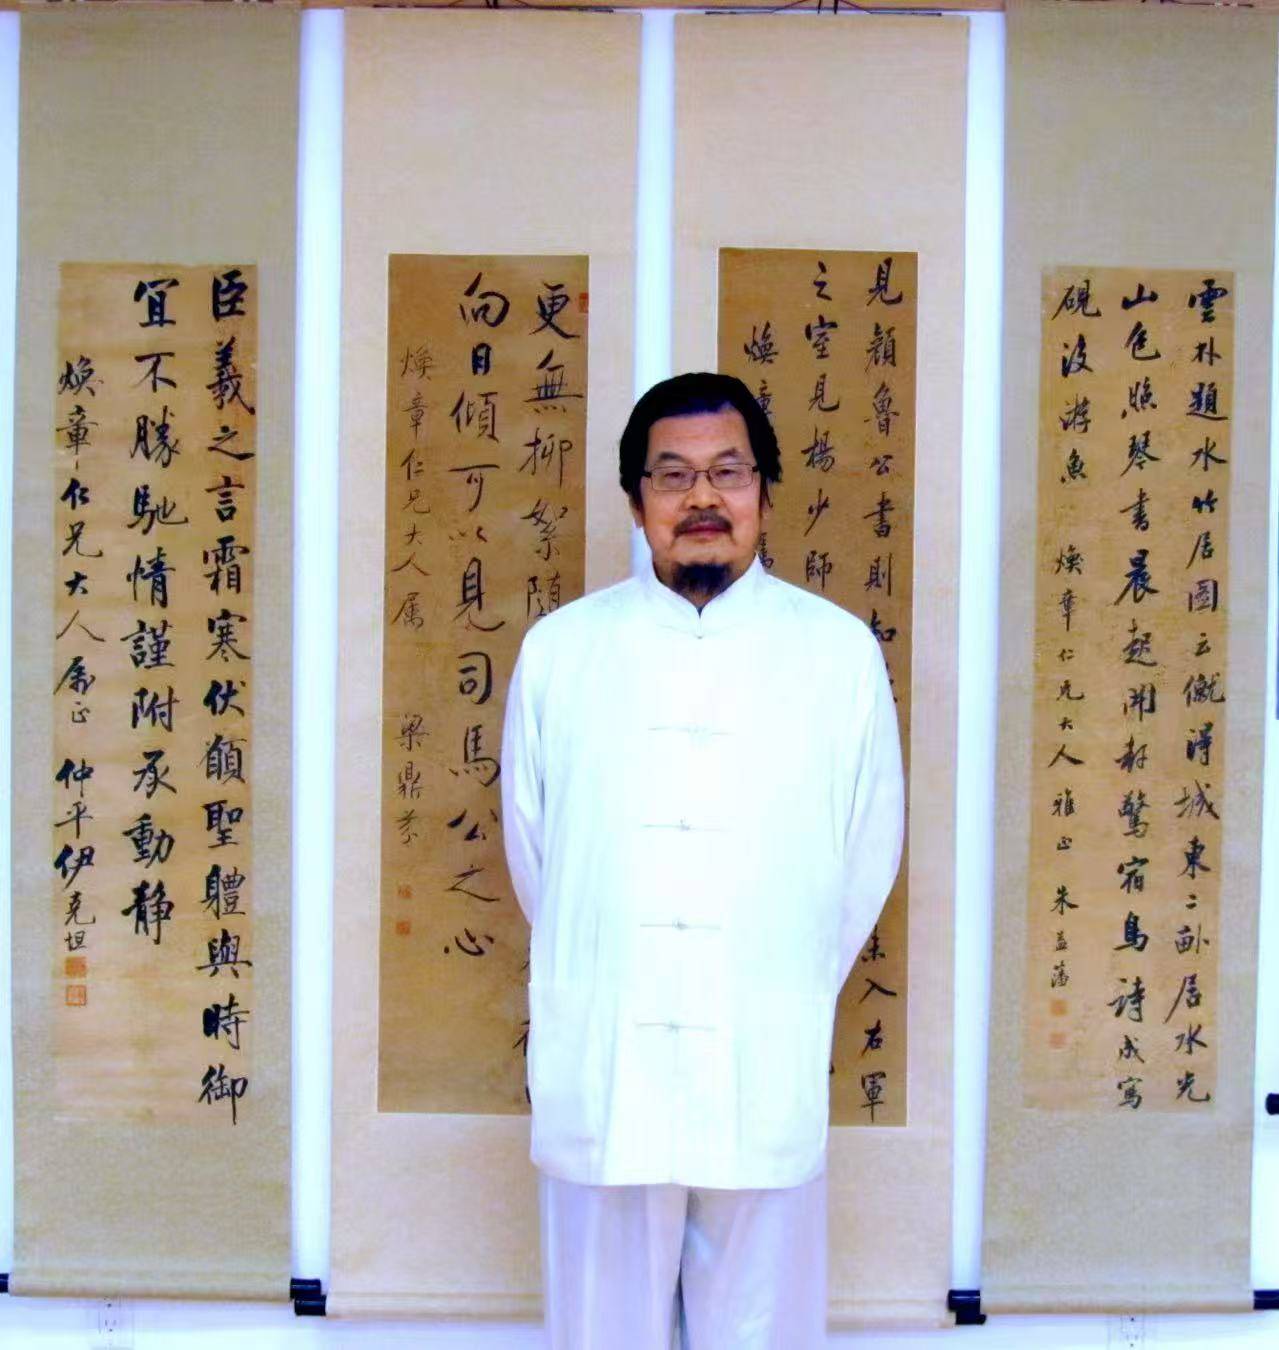 雲朴題水竹居圖云僦得城東二畝居水光
山色照琴書晨起開軒驚宿鳥詩成寫
硯沒游魚
煥章仁兄大人雅正 朱益藩
見顏魯公書則知
入右軍
之室見楊少師
煥章
更無柳絮隨
向日傾可以見司馬公之心
煥章仁兄大人属 梁鼎芬
臣羲之言霜寒伏願聖體與時御
宜不勝馳情謹附承動靜
煥章仁兄大人属正 仲平伊克坦